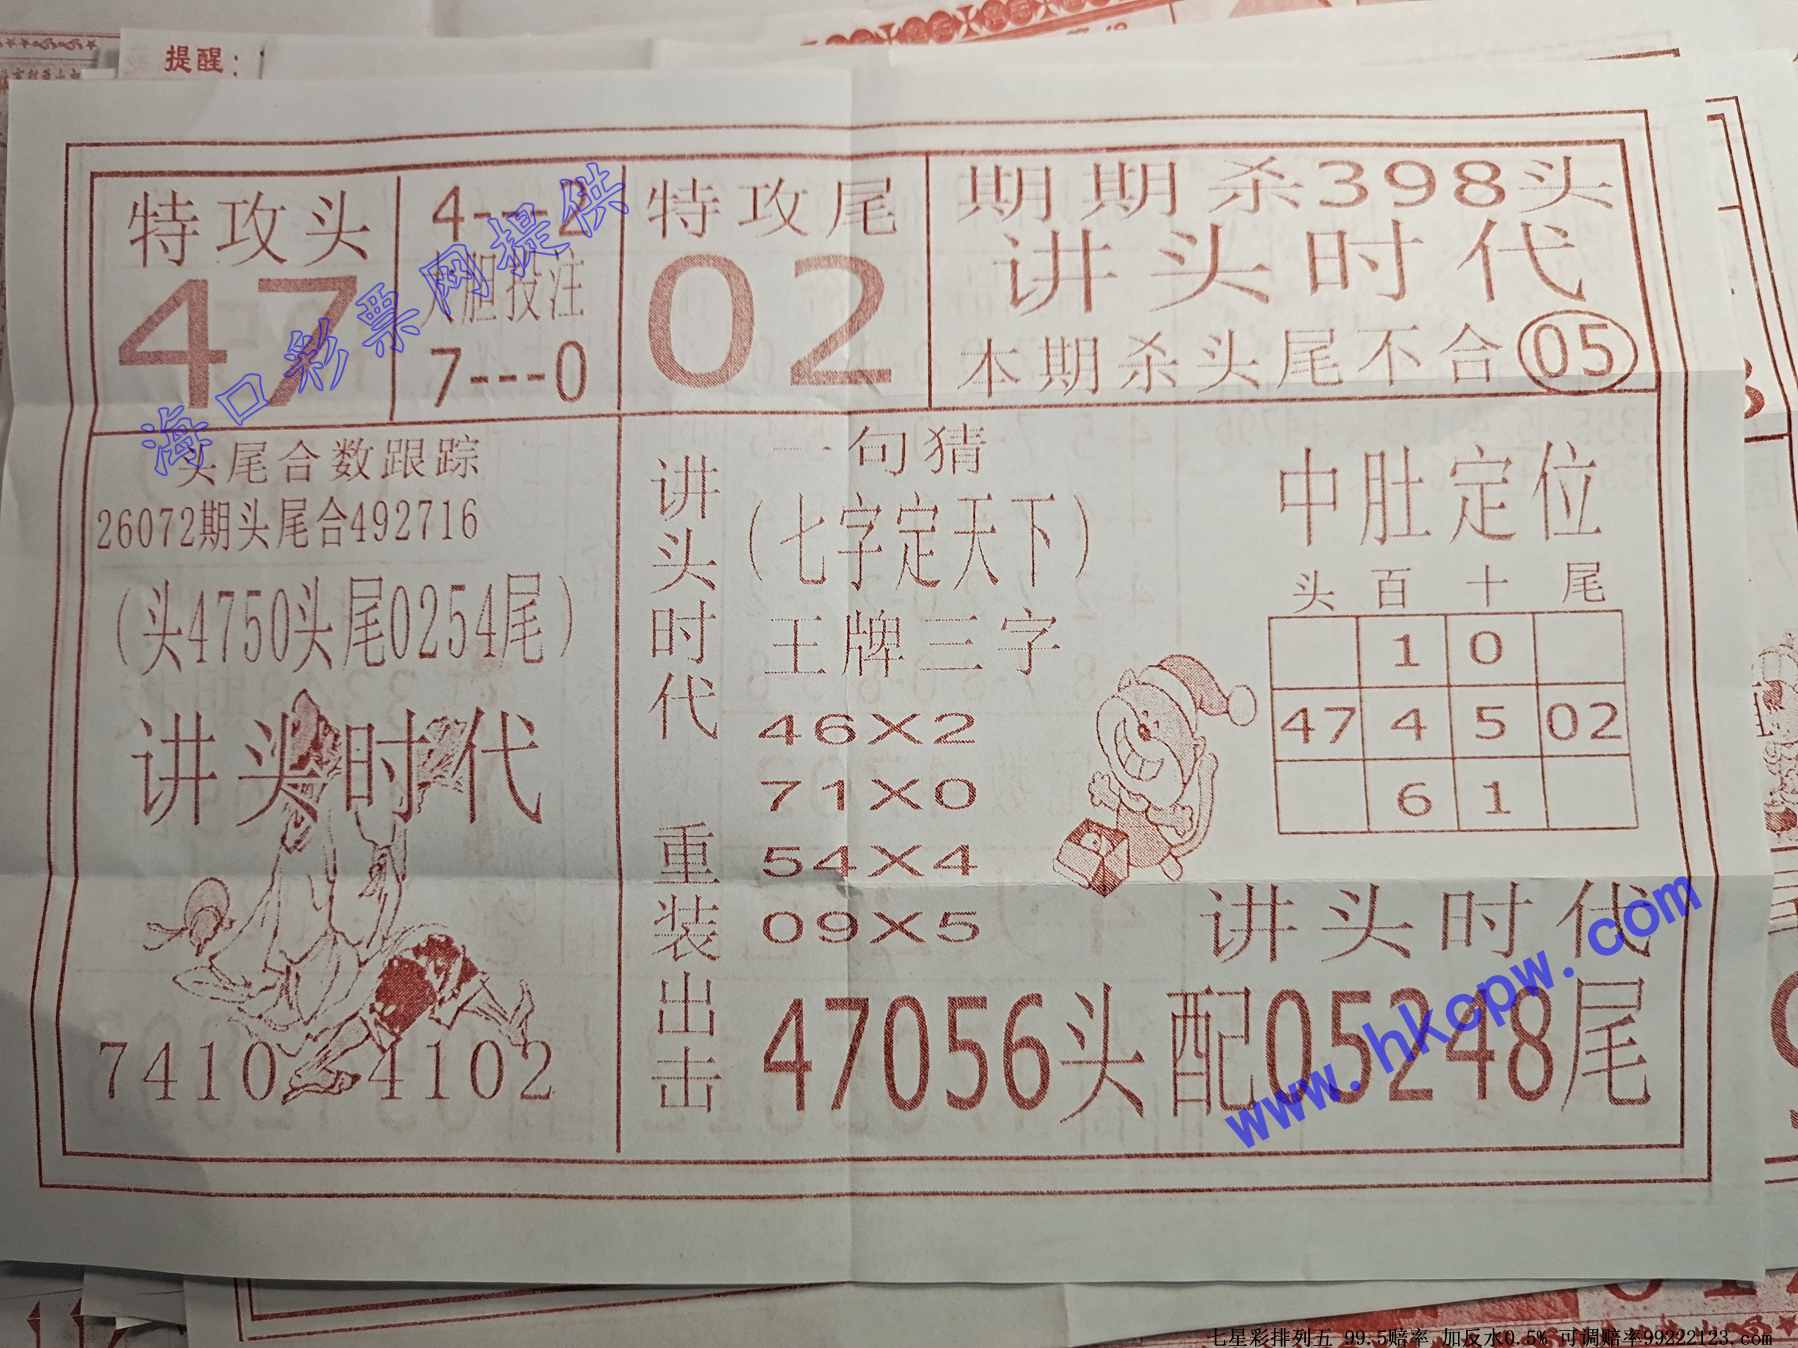 提醒：
特攻头
47
4---2
大胆投注
7---0
特攻尾
02
期期杀398头
讲头时代
本期杀头尾不合05
头尾合数跟踪
26072期头尾合492716
（头4750头尾0254尾）
讲头时代
7410 4102
讲头时代
重装出击
一句猜
（七字定天下）
王牌三字
46X2
71X0
54X4
09X5
中肚定位
头 百 十 尾
1 0
47 4 5 02
6 1
讲头时代
47056头配05248尾
海口彩票网提供
www.hkcpw.com
七星彩排列五 99.5赔率 加反水0.5% 可调赔率99222123.com